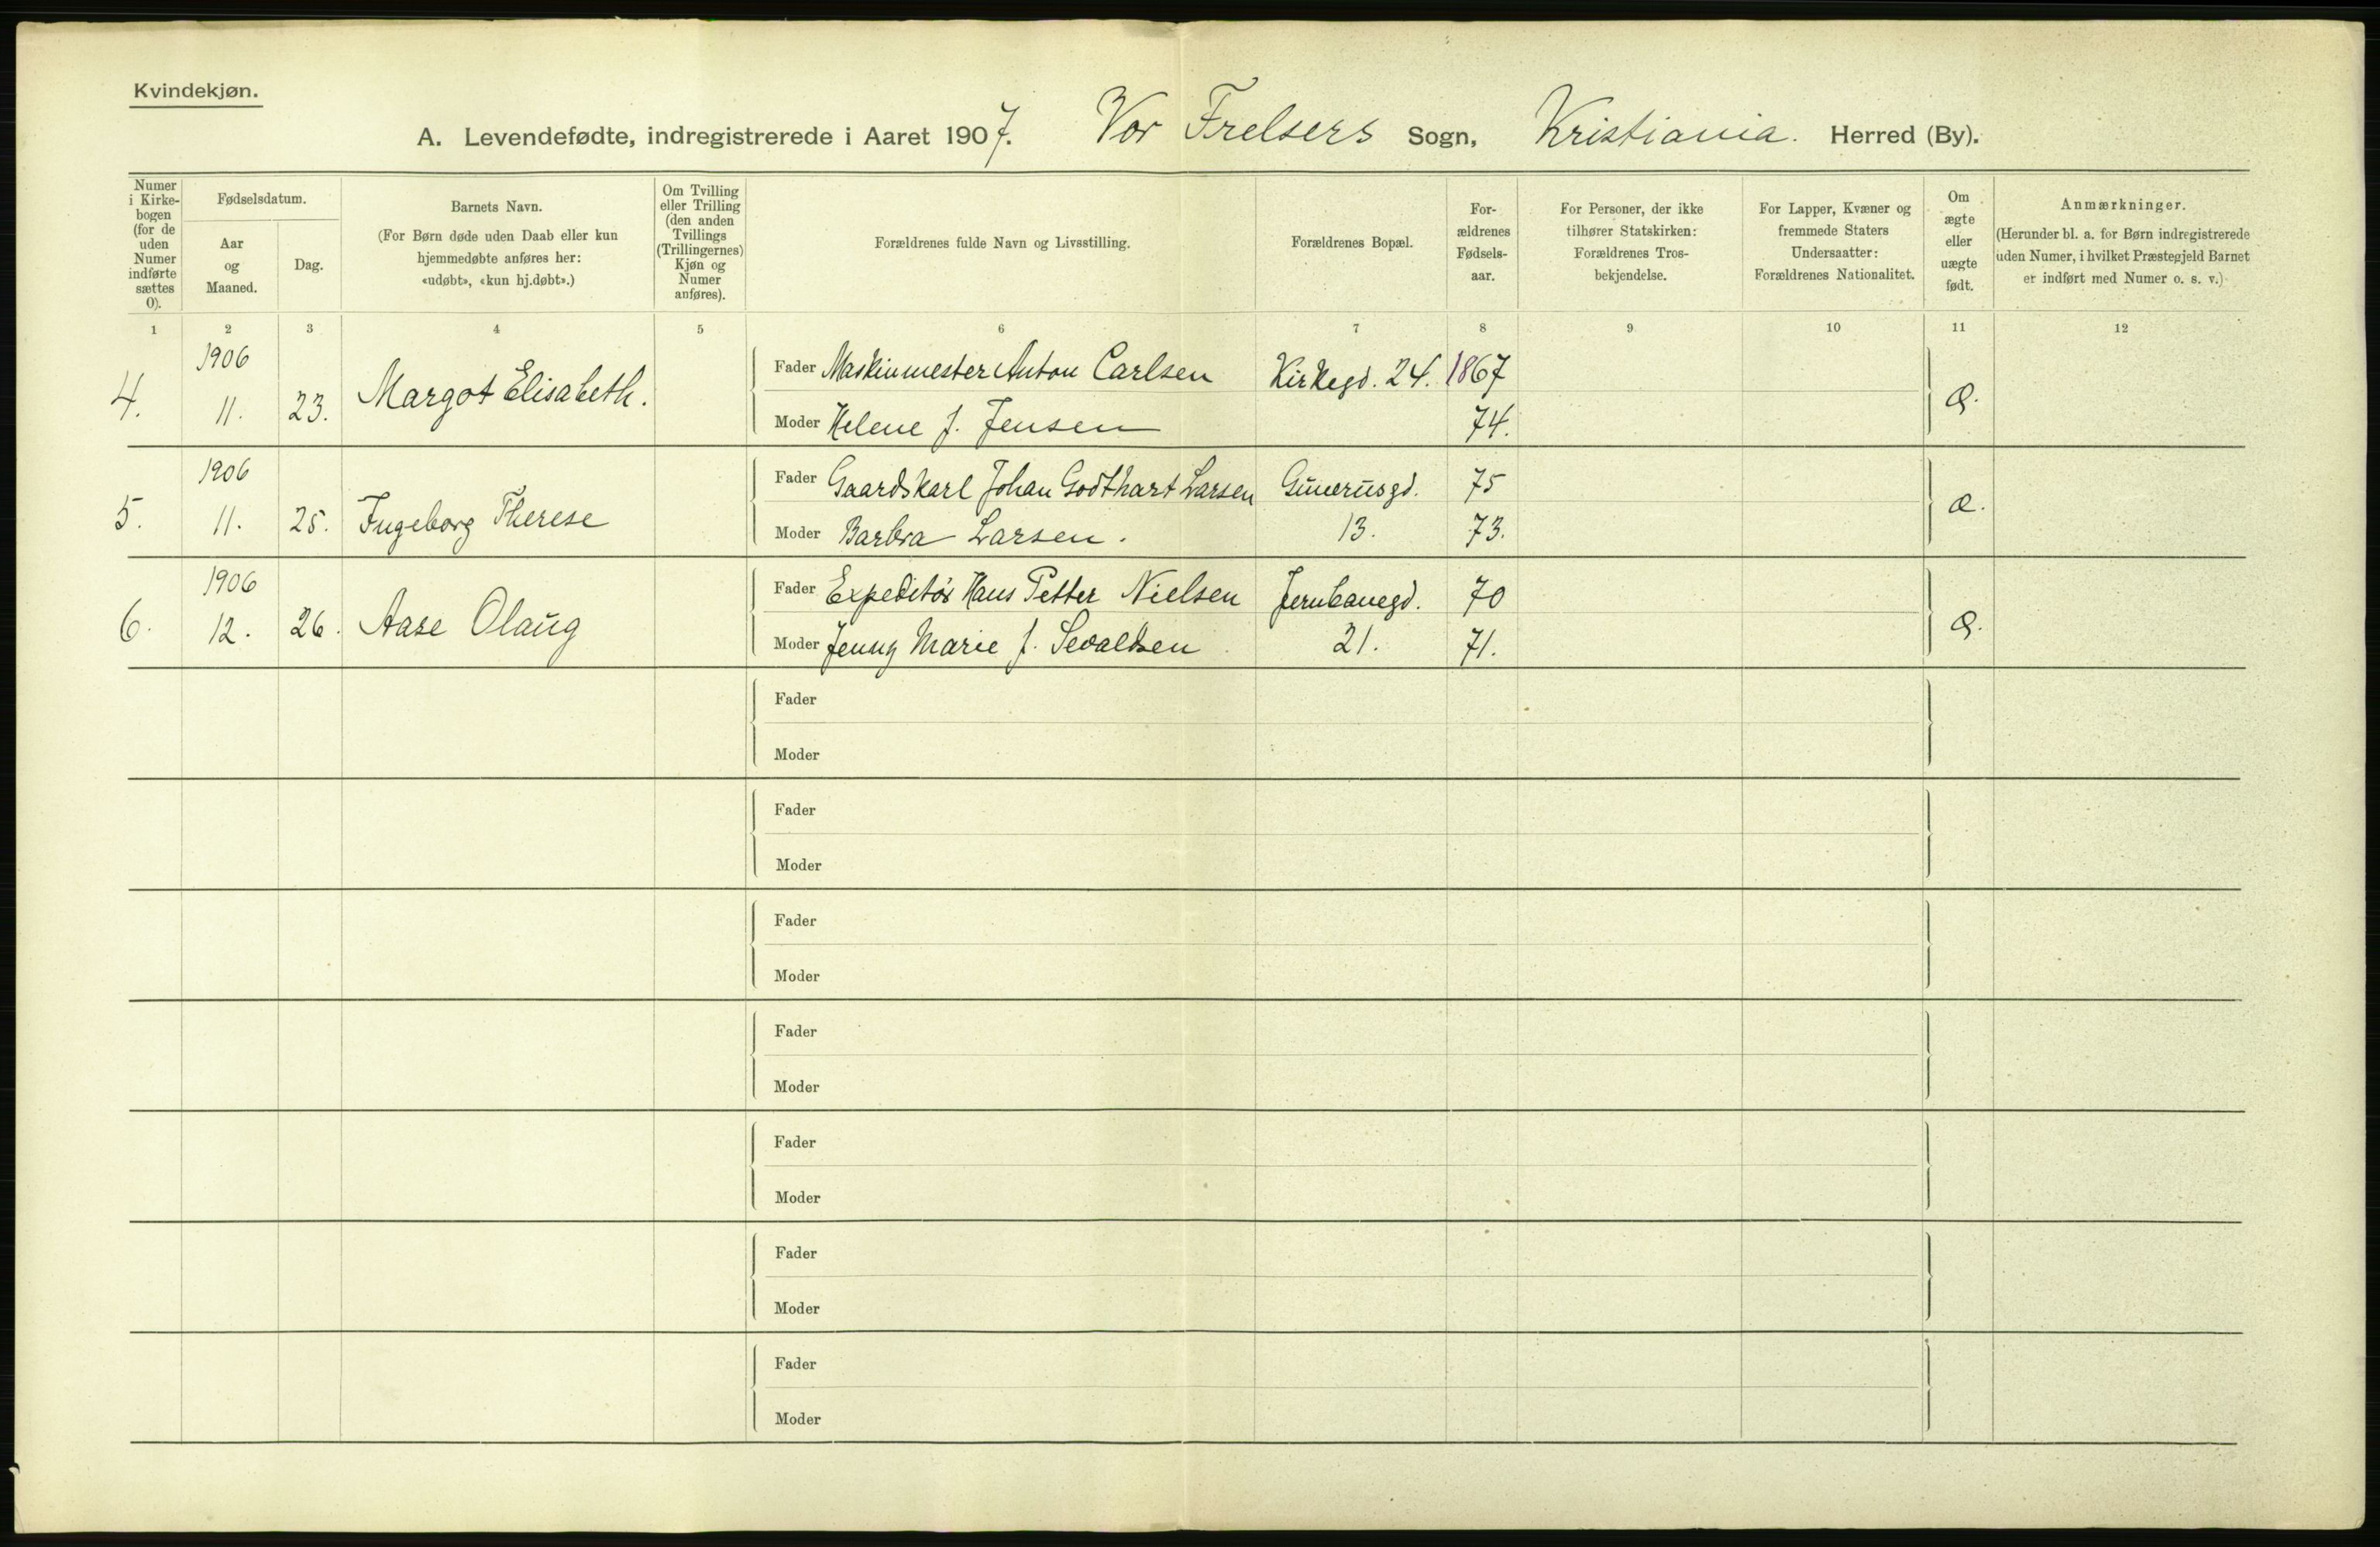 Kvindekjøn.
A. Levendefødte, indregistrerede i Aaret 1907. Vor Frelsers Sogn, Kristiania. Herred (By).
Numer i Kirkebogen (for de uden Numer indførte sættes 0).
Fødselsdatum.
Aar og Maaned.
Dag.
Barnets Navn.
(For Børn døde uden Daab eller kun
hjemmedøbte anføres her:
«udøbt», «kun hj.døbt».)
Om Tvilling
eller Trilling
(den anden
Tvillings
(Trillingernes)
Kjøn og
Numer
anføres).
Forældrenes fulde Navn og Livsstilling.
Forældrenes Bopæl.
For-
ældrenes
Fødsels-
aar.
For Personer, der ikke
tilhører Statskirken:
Forældrenes Tros-
bekjendelse.
For Lapper, Kvæner og
fremmede Staters
Undersaatter:
Forældrenes Nationalitet.
Om
ægte
eller
uægte
født.
Anmærkninger.
(Herunder bl. a. for Børn indregistrerede
uden Numer, i hvilket Præstegjeld Barnet
er indført med Numer o. s. v.)
1 2 3 4 5 6 7 8 9 10 11 12
1906
Fader Maskinmester Anton Carlsen Kirkegd. 24. 1867
4. 11. 23. Margot Elisabeth. æ.
Moder Helene f. Jensen 74.
1906
Fader Gaardskarl Johan Godthart Larsen Gunerusgd. 75
5. 11. 25. Ingeborg Therese æ.
Moder Barbra Larsen. 13. 73.
1906
Fader Expeditør Hans Petter Nielsen Jernbanegd. 70
6. 12. 26. Aase Olaug æ.
Moder Jenny Marie f. Sevaldsen 21. 71.
Fader
Moder
Fader
Moder
Fader
Moder
Fader
Moder
Fader
Moder
Fader
Moder
Fader
Moder